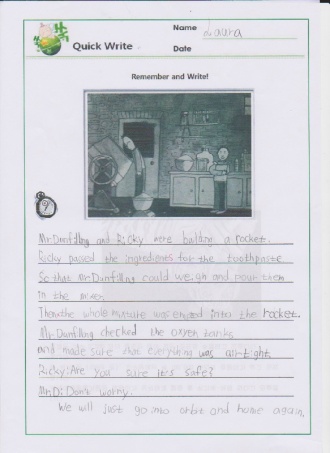 Name Laura
Quick Write
Date
Remember and Write!
Mr.Dunfilling and Ricky were building a rocket.
Ricky passed the ingredients for the toothpaste
So that Mr.Dunfilling could weigh and pour them
in the mixer.
Then the whole mixture was emptied into the rocket.
Mr.Dunfilling checked the oxyen tanks
and made sure that everything was air-tight.
Ricky:Are you sure it's safe?
Mr.D:Don't worry.
We will just go into orbit and home again.